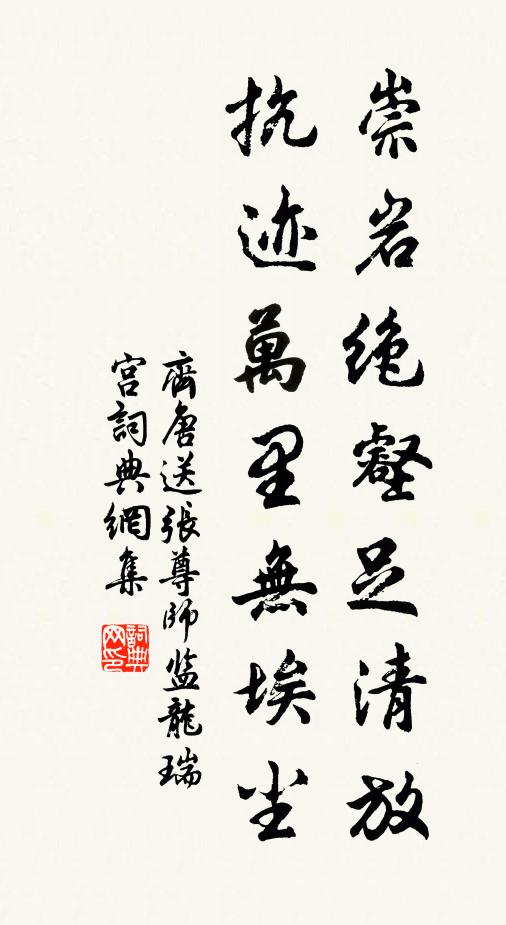 崇岩绝壑足清放
抗迹萬里無埃尘
齊唐送張尊師监龍瑞
宫詞典網集
詞典
网印